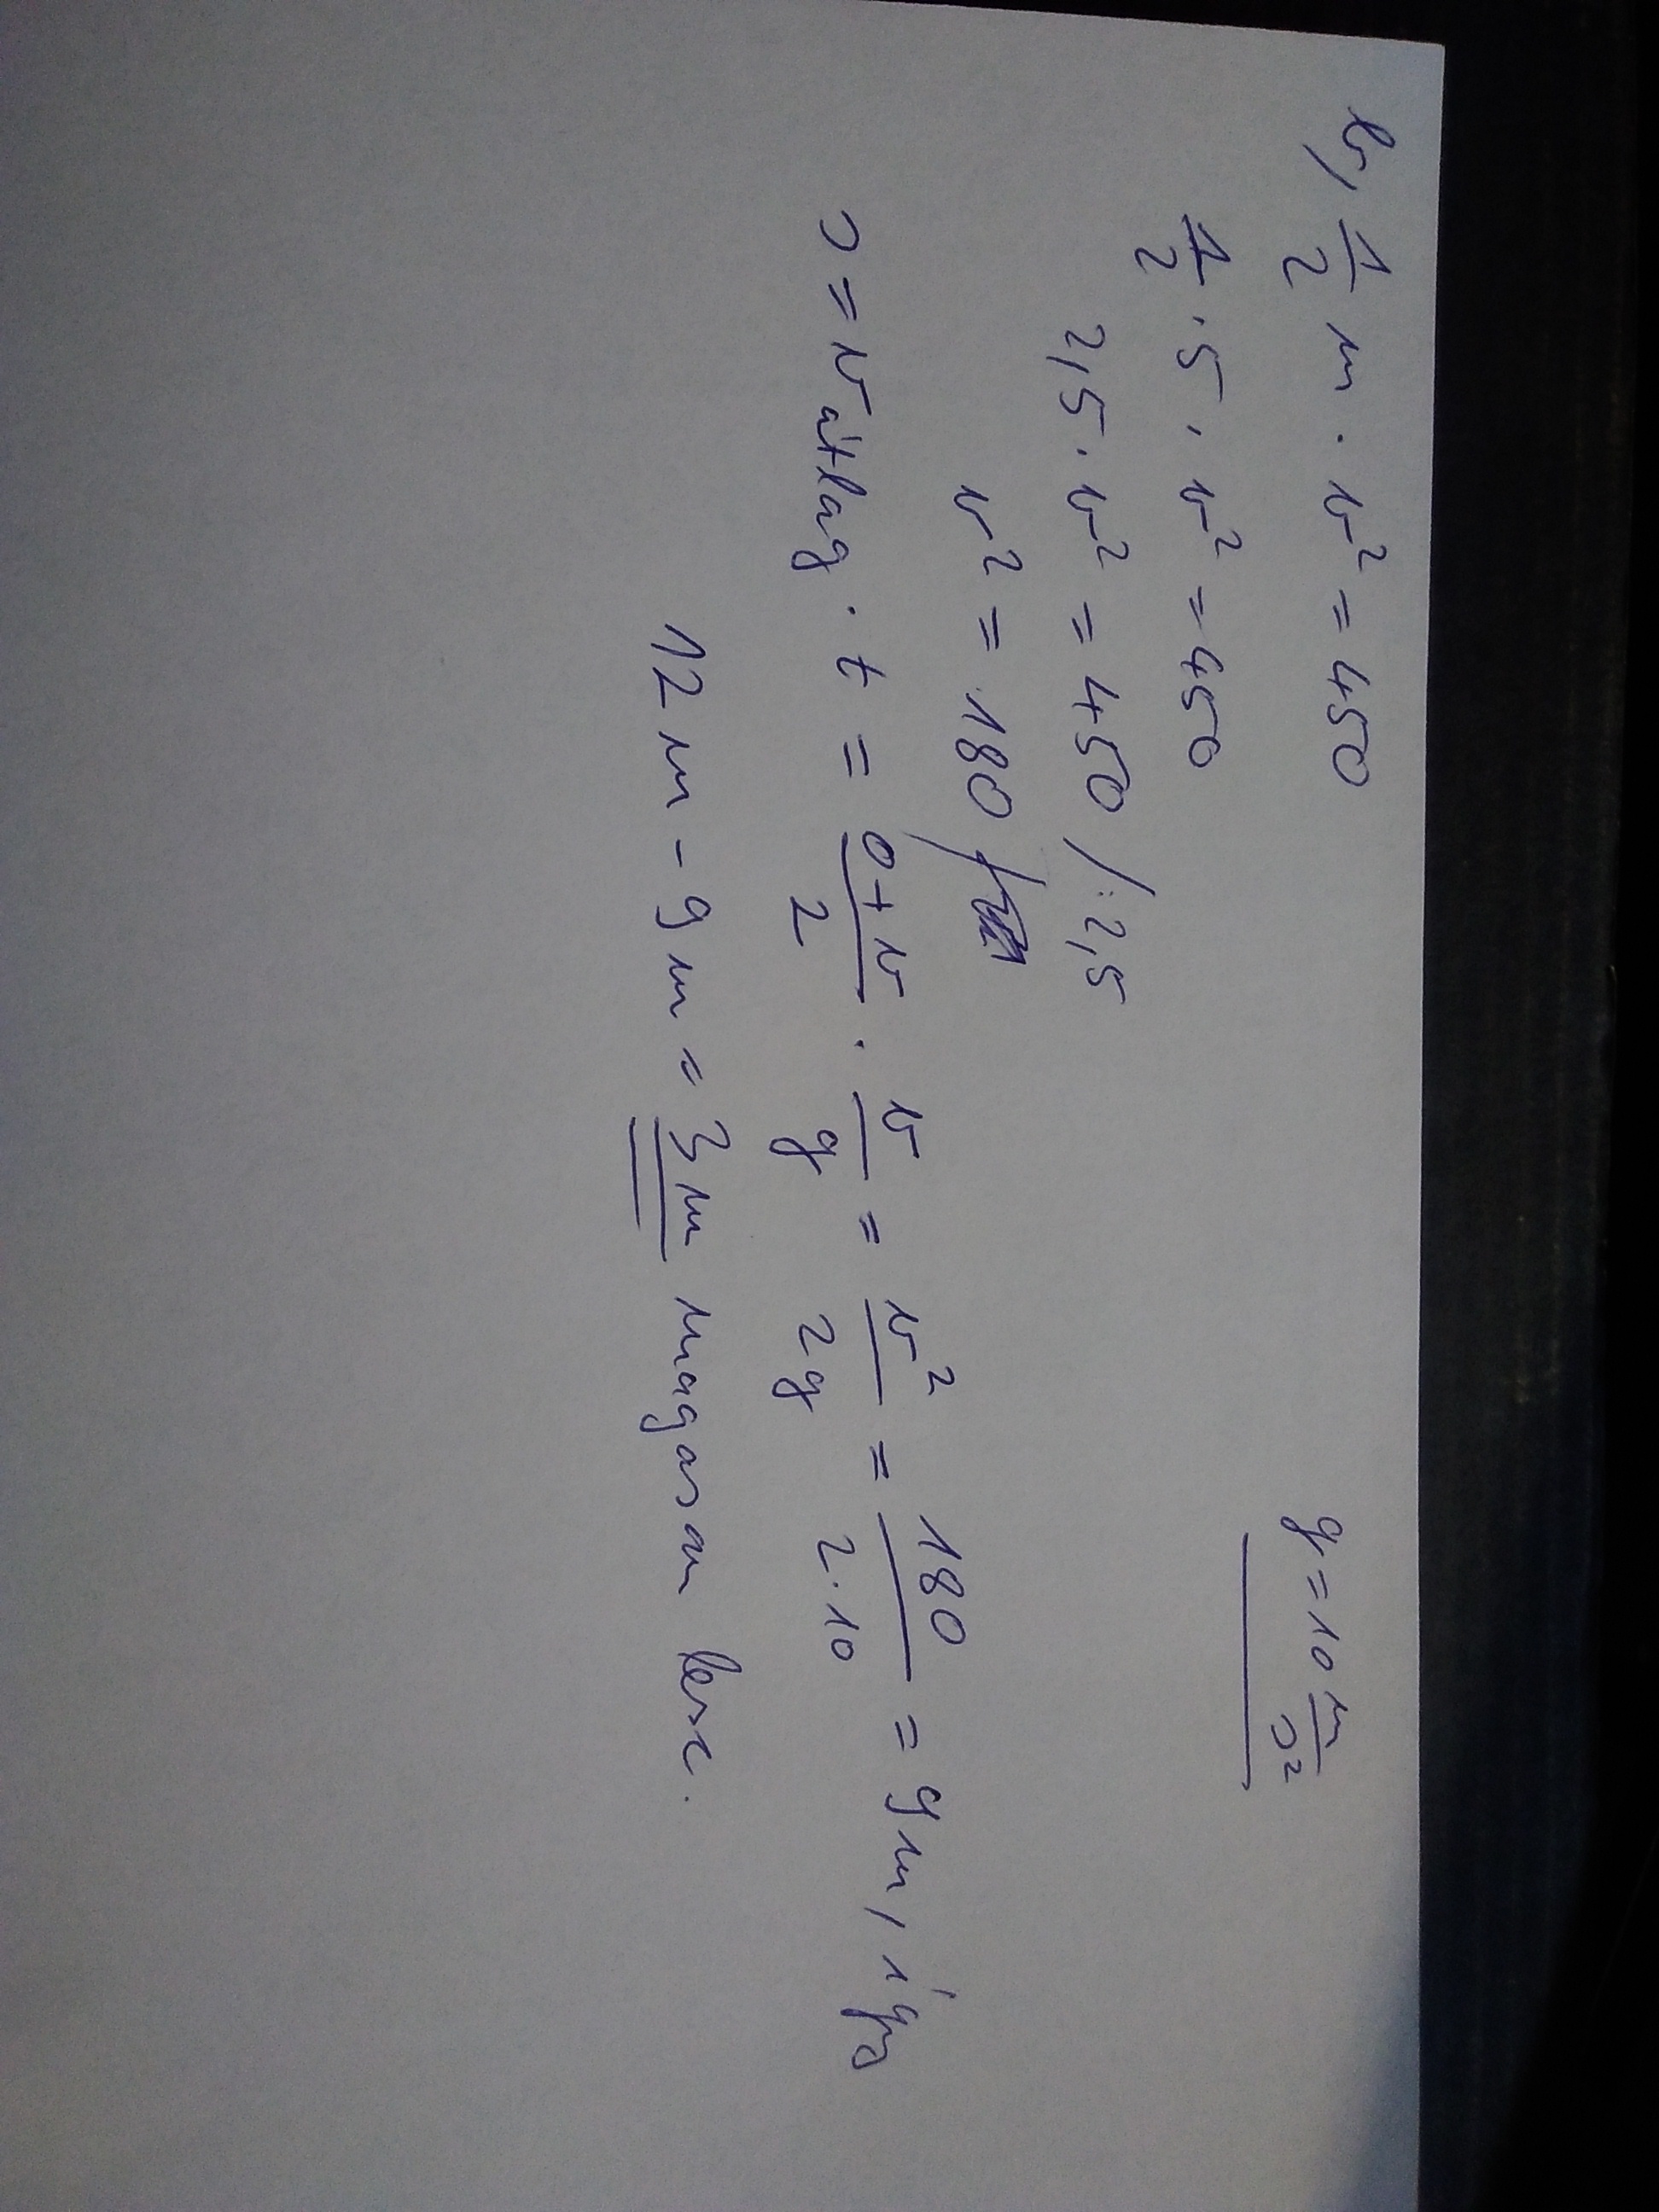 b, 1/2 m · v² = 450
g = 10 m/s²
1/2 · 5 · v² = 450
2,5 · v² = 450 /: 2,5
v² = 180 /
s = v átlag · t = (0+v)/2 · v/g = v²/2g = 180/2·10 = 9m, így
12 m - 9 m = 3 m magasan lesz.